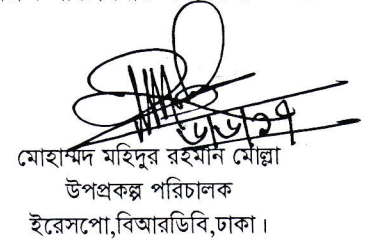 ৬/৬/১৭
মোহাম্মদ মহিদুর রহমান মোল্লা
উপপ্রকল্প পরিচালক
ইরেসপো,বিআরডিবি,ঢাকা।